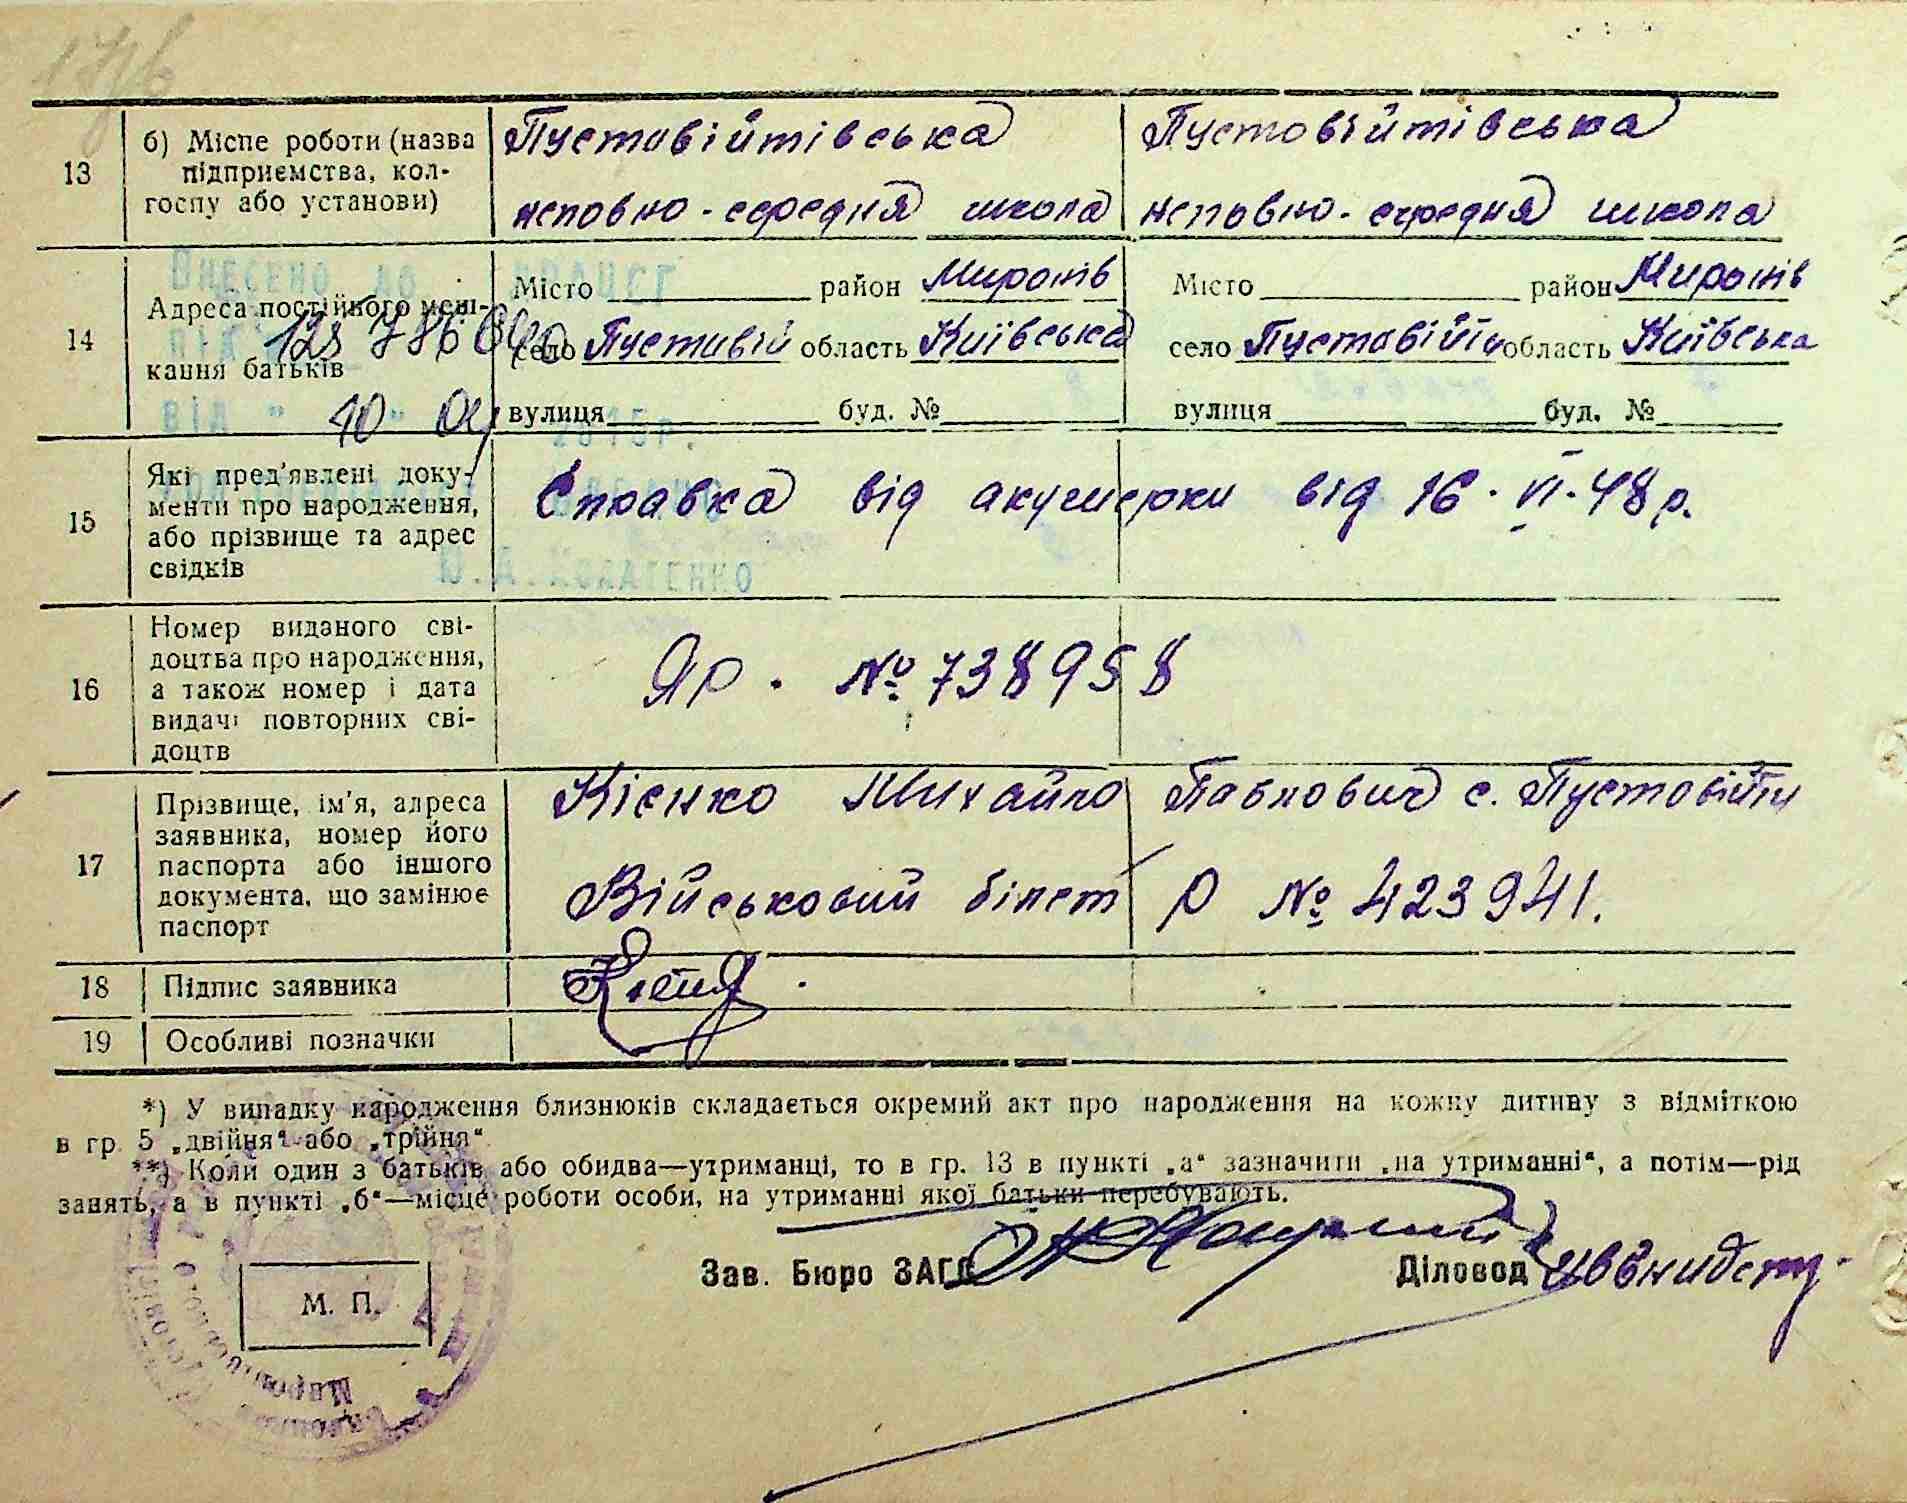 13
б) Місце роботи (назва
підприємства, кол-
госпу або установи)
Пустовійтівська
неповно-середня школа
Пустовійтівська
неповно-середня школа
14
Адреса постійного меш-
кання батьків
Внесено до
від " 10 " 04 2015р.
Місто район Миронів
село Пустовій область Київська
вулиця буд. №
Місто район Миронів
село Пустовійти область Київська
вулиця буд. №
15
Які пред'явлені доку-
менти про народження,
або прізвище та адрес
свідків
Справка від акушерки від 16·VI·48р.
16
Номер виданого сві-
доцтва про народження,
а також номер і дата
видачі повторних сві-
доцтв
ЯР. № 738958
17
Прізвище, ім'я, адреса
заявника, номер його
паспорта або іншого
документа, що замінює
паспорт
Кієнко Михайло Павлович с. Пустовійти
Військовий білет Р № 423941.
18
Підпис заявника
19
Особливі позначки
*) У випадку народження близнюків складається окремий акт про народження на кожну дитину з відміткою
в гр. 5 „двійня“ або „трійня“
**) Коли один з батьків або обидва—утриманці, то в гр. 13 в пункті „а“ зазначити „на утриманні“, а потім—рід
занять, а в пункті „б“—місце роботи особи, на утриманні якої батьки перебувають.
Зав. Бюро ЗАГС
Діловод
М. П.